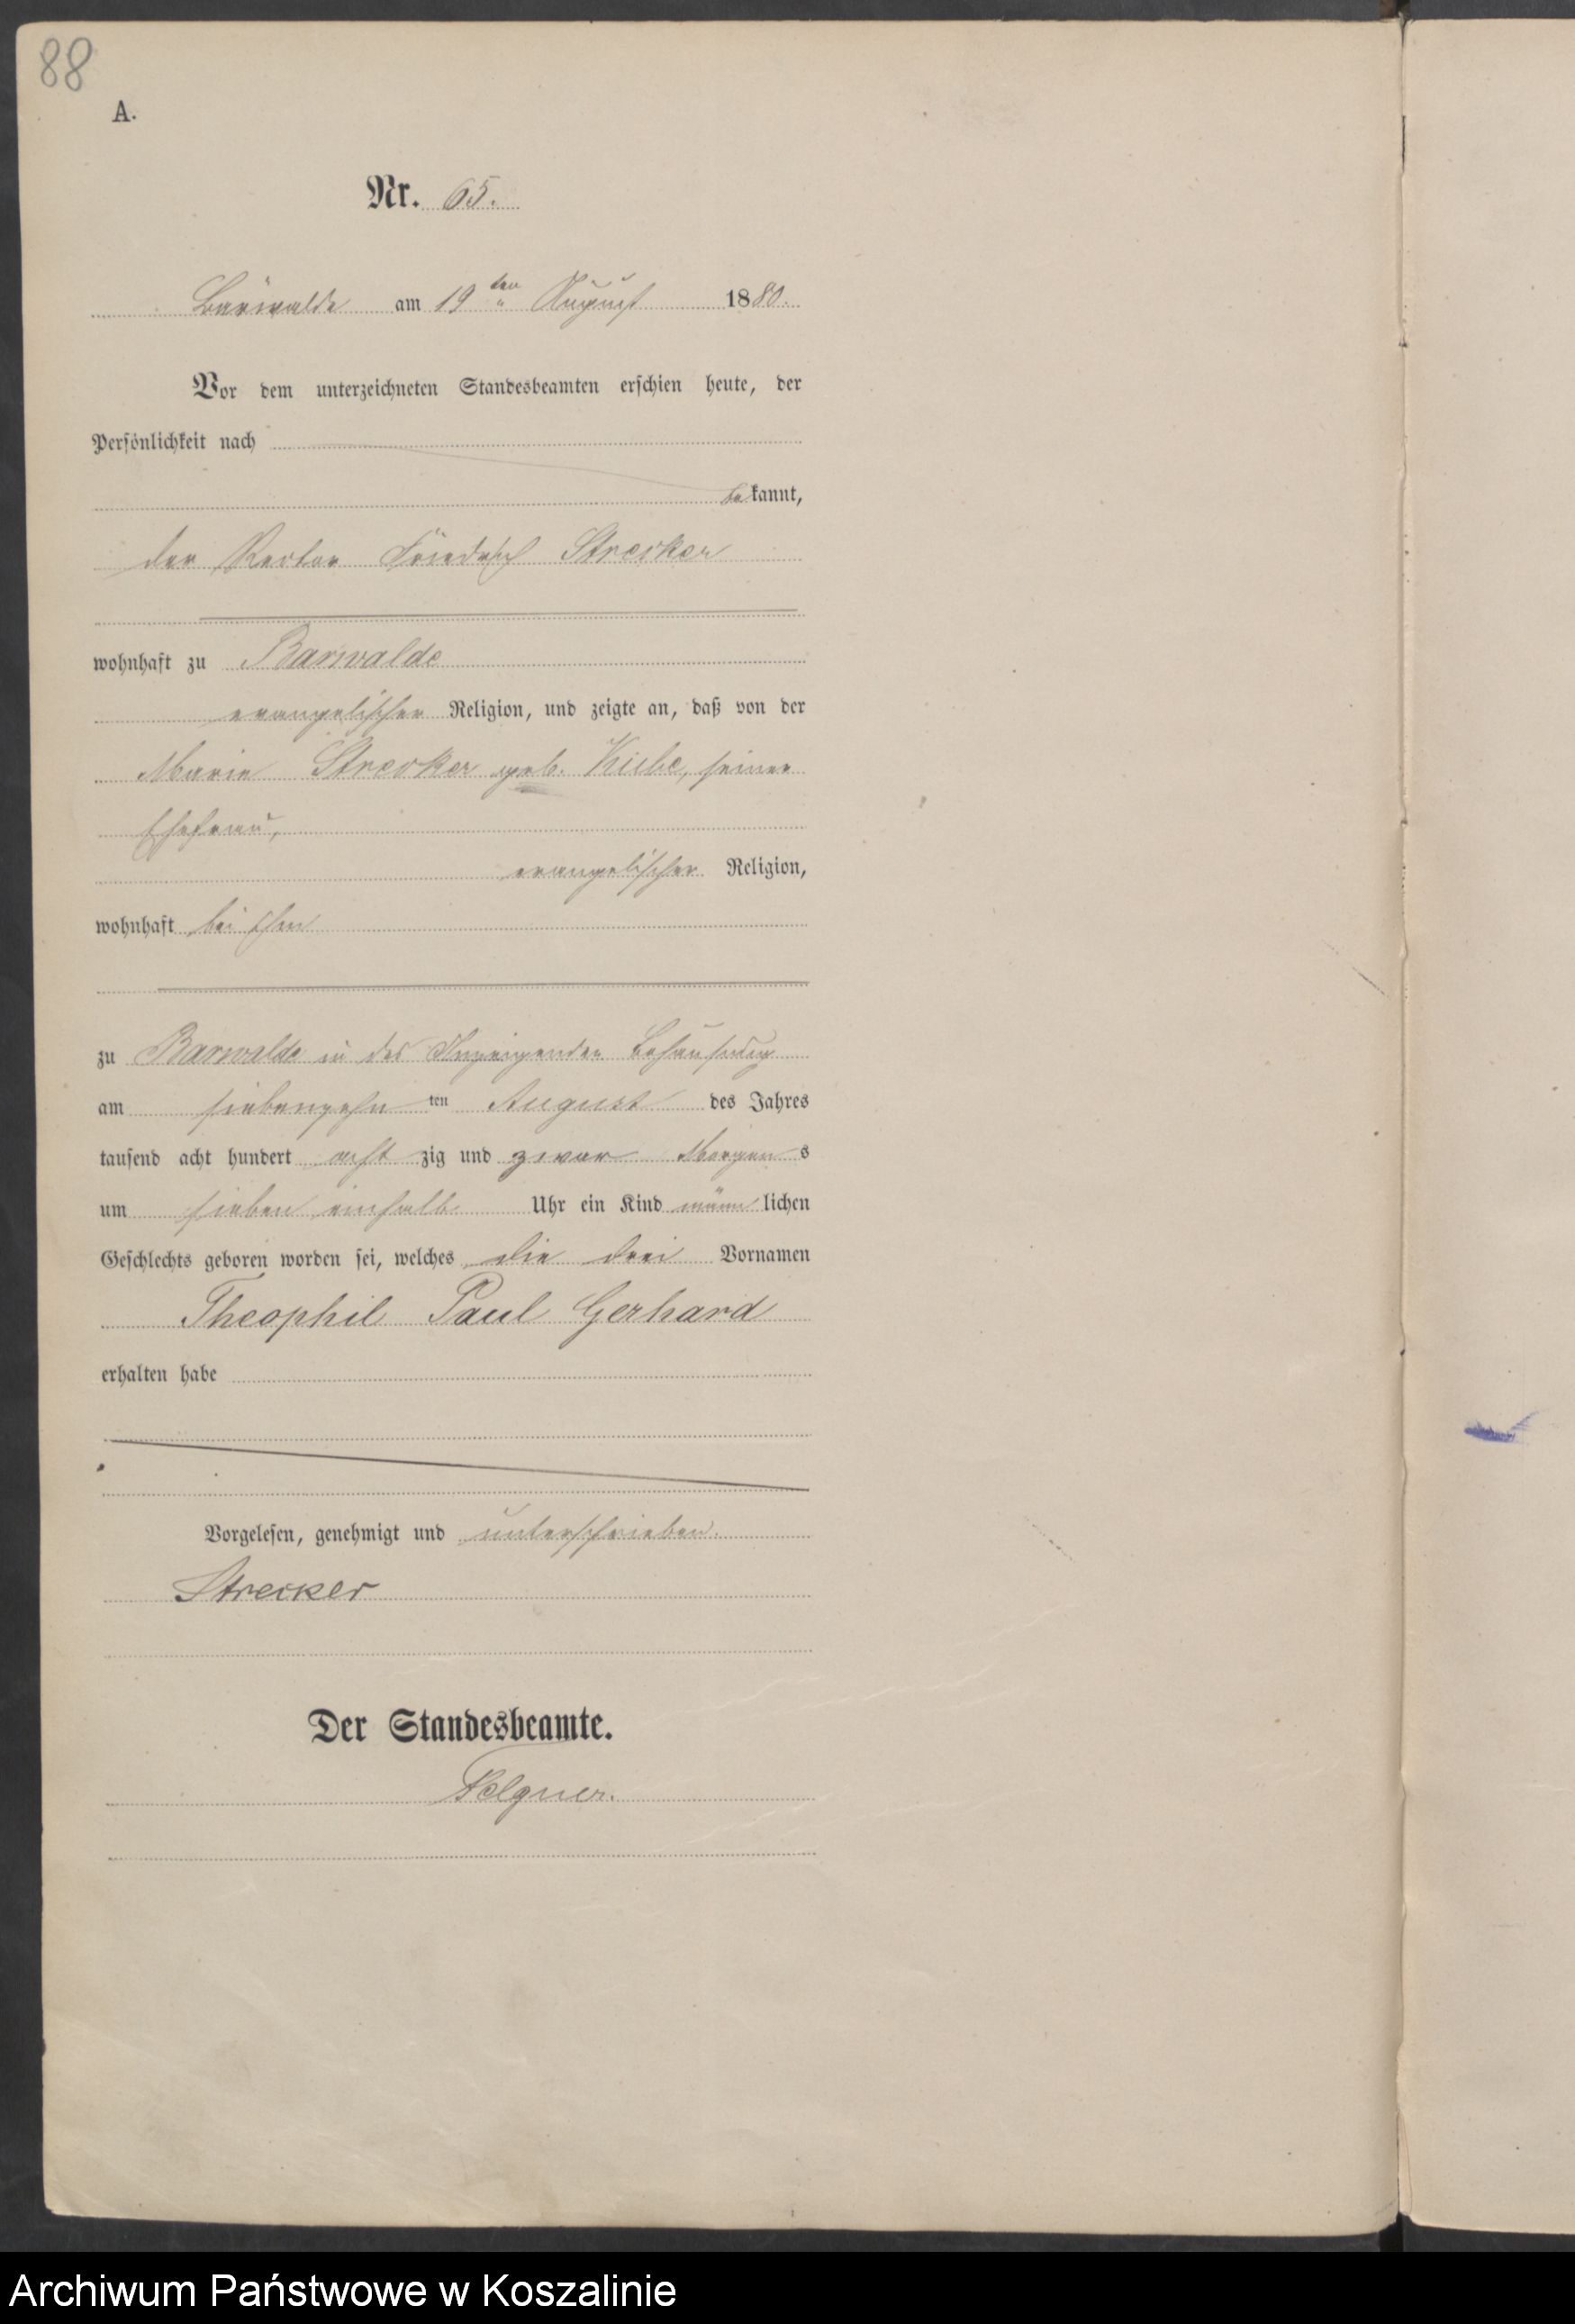 88
A.
Nr. 65.
Bärwalde am 19 ten August 1880.
Vor dem unterzeichneten Standesbeamten erschien heute, der
Persönlichkeit nach
bekannt,
der Rector Friedrich Strecker
wohnhaft zu Barwalde
evangelischer Religion, und zeigte an, daß von der
Marie Strecker geb. Kube, seiner
Ehefrau,
evangelischer Religion,
wohnhaft bei ihm
zu Barwalde in des Anzeigenden Behausung
am siebenzehn ten August des Jahres
tausend acht hundert acht zig und zwar Morgen s
um sieben einhalb Uhr ein Kind männ lichen
Geschlechts geboren worden sei, welches die drei Vornamen
Theophil Paul Gerhard
erhalten habe
Vorgelesen, genehmigt und unterschrieben.
Strecker
Der Standesbeamte.
Felgner.
Archiwum Państwowe w Koszalinie